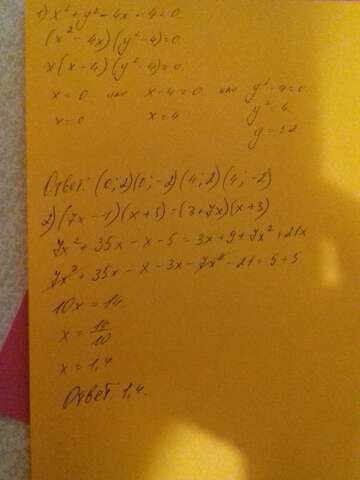 1) x² + y² - 4x - 4 = 0
(x² - 4x)(y² - 4) = 0
x(x - 4)(y² - 4) = 0
x = 0 или x - 4 = 0 или y² - 4 = 0
x = 0 x = 4 y² = 4
y = ±2
Ответ: (0; 2)(0; -2)(4; 2)(4; -2)
2) (7x - 1)(x + 5) = (3 + 7x)(x + 3)
7x² + 35x - x - 5 = 3x + 9 + 7x² + 21x
7x² + 35x - x - 3x - 7x² - 21 = 5 + 5
10x = 14
x = 14/10
x = 1,4
Ответ: 1,4.